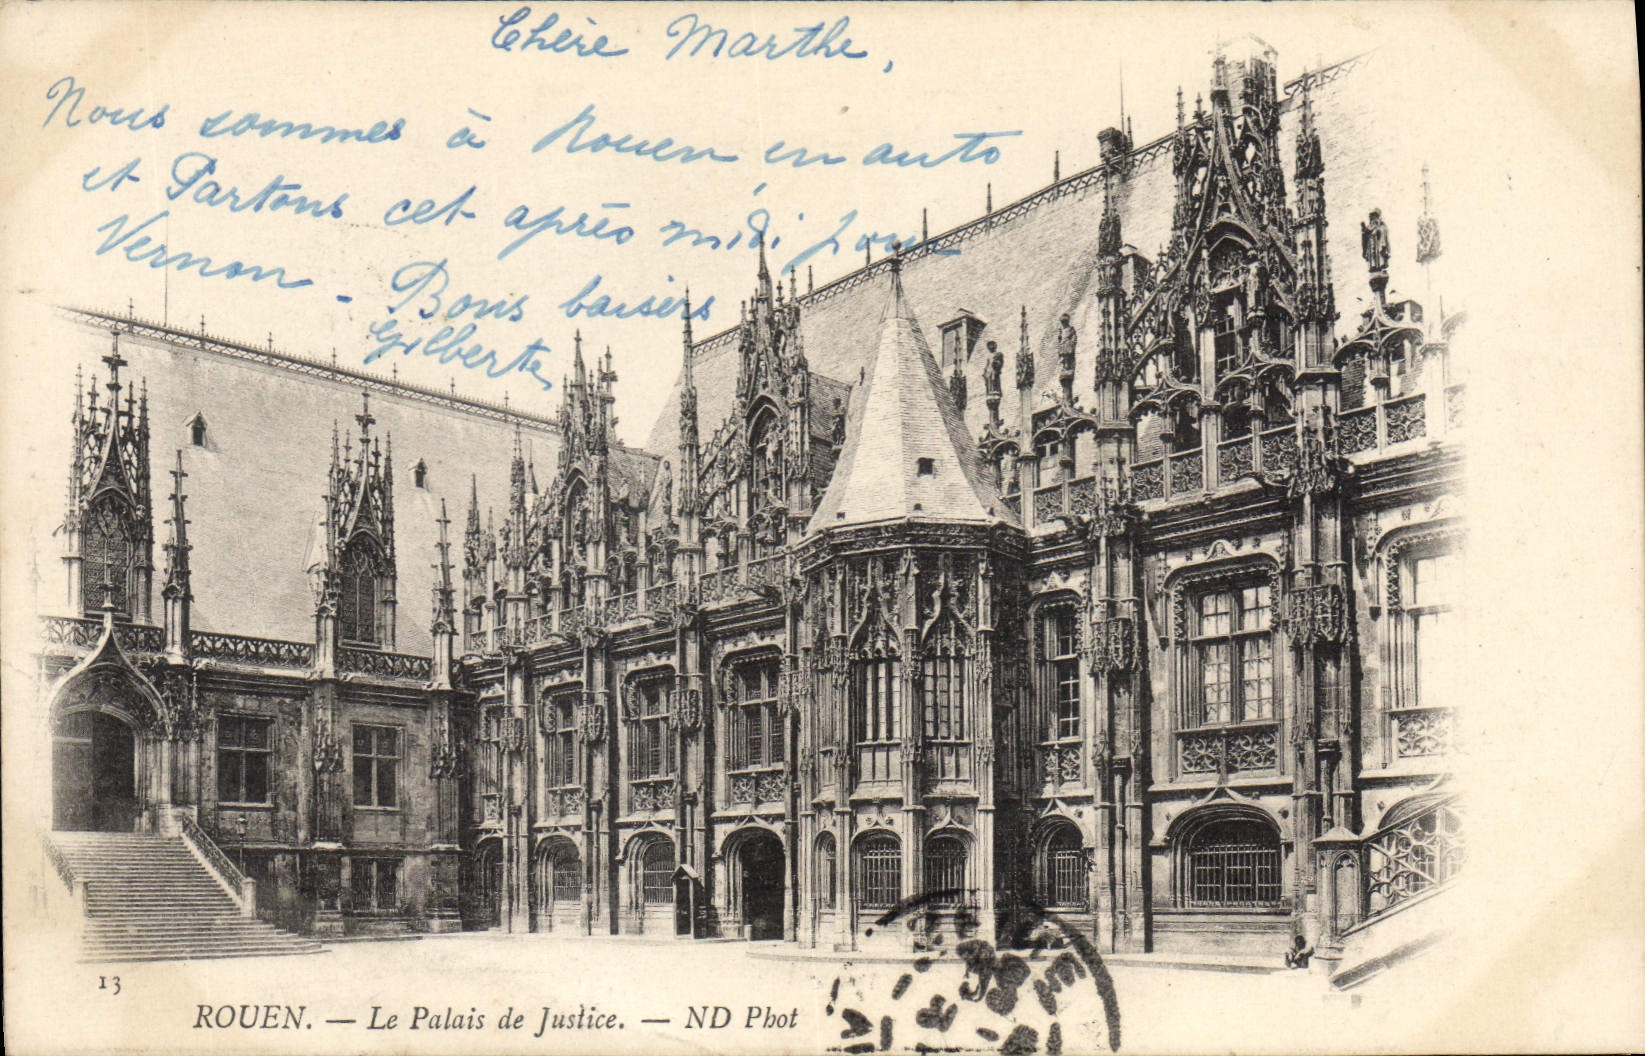 Chère Marthe,
Nous sommes à Rouen en auto
et Partons cet après midi pour
Vernon - Bons baisers
Gilberte
13
ROUEN. — Le Palais de Justice. — ND Phot